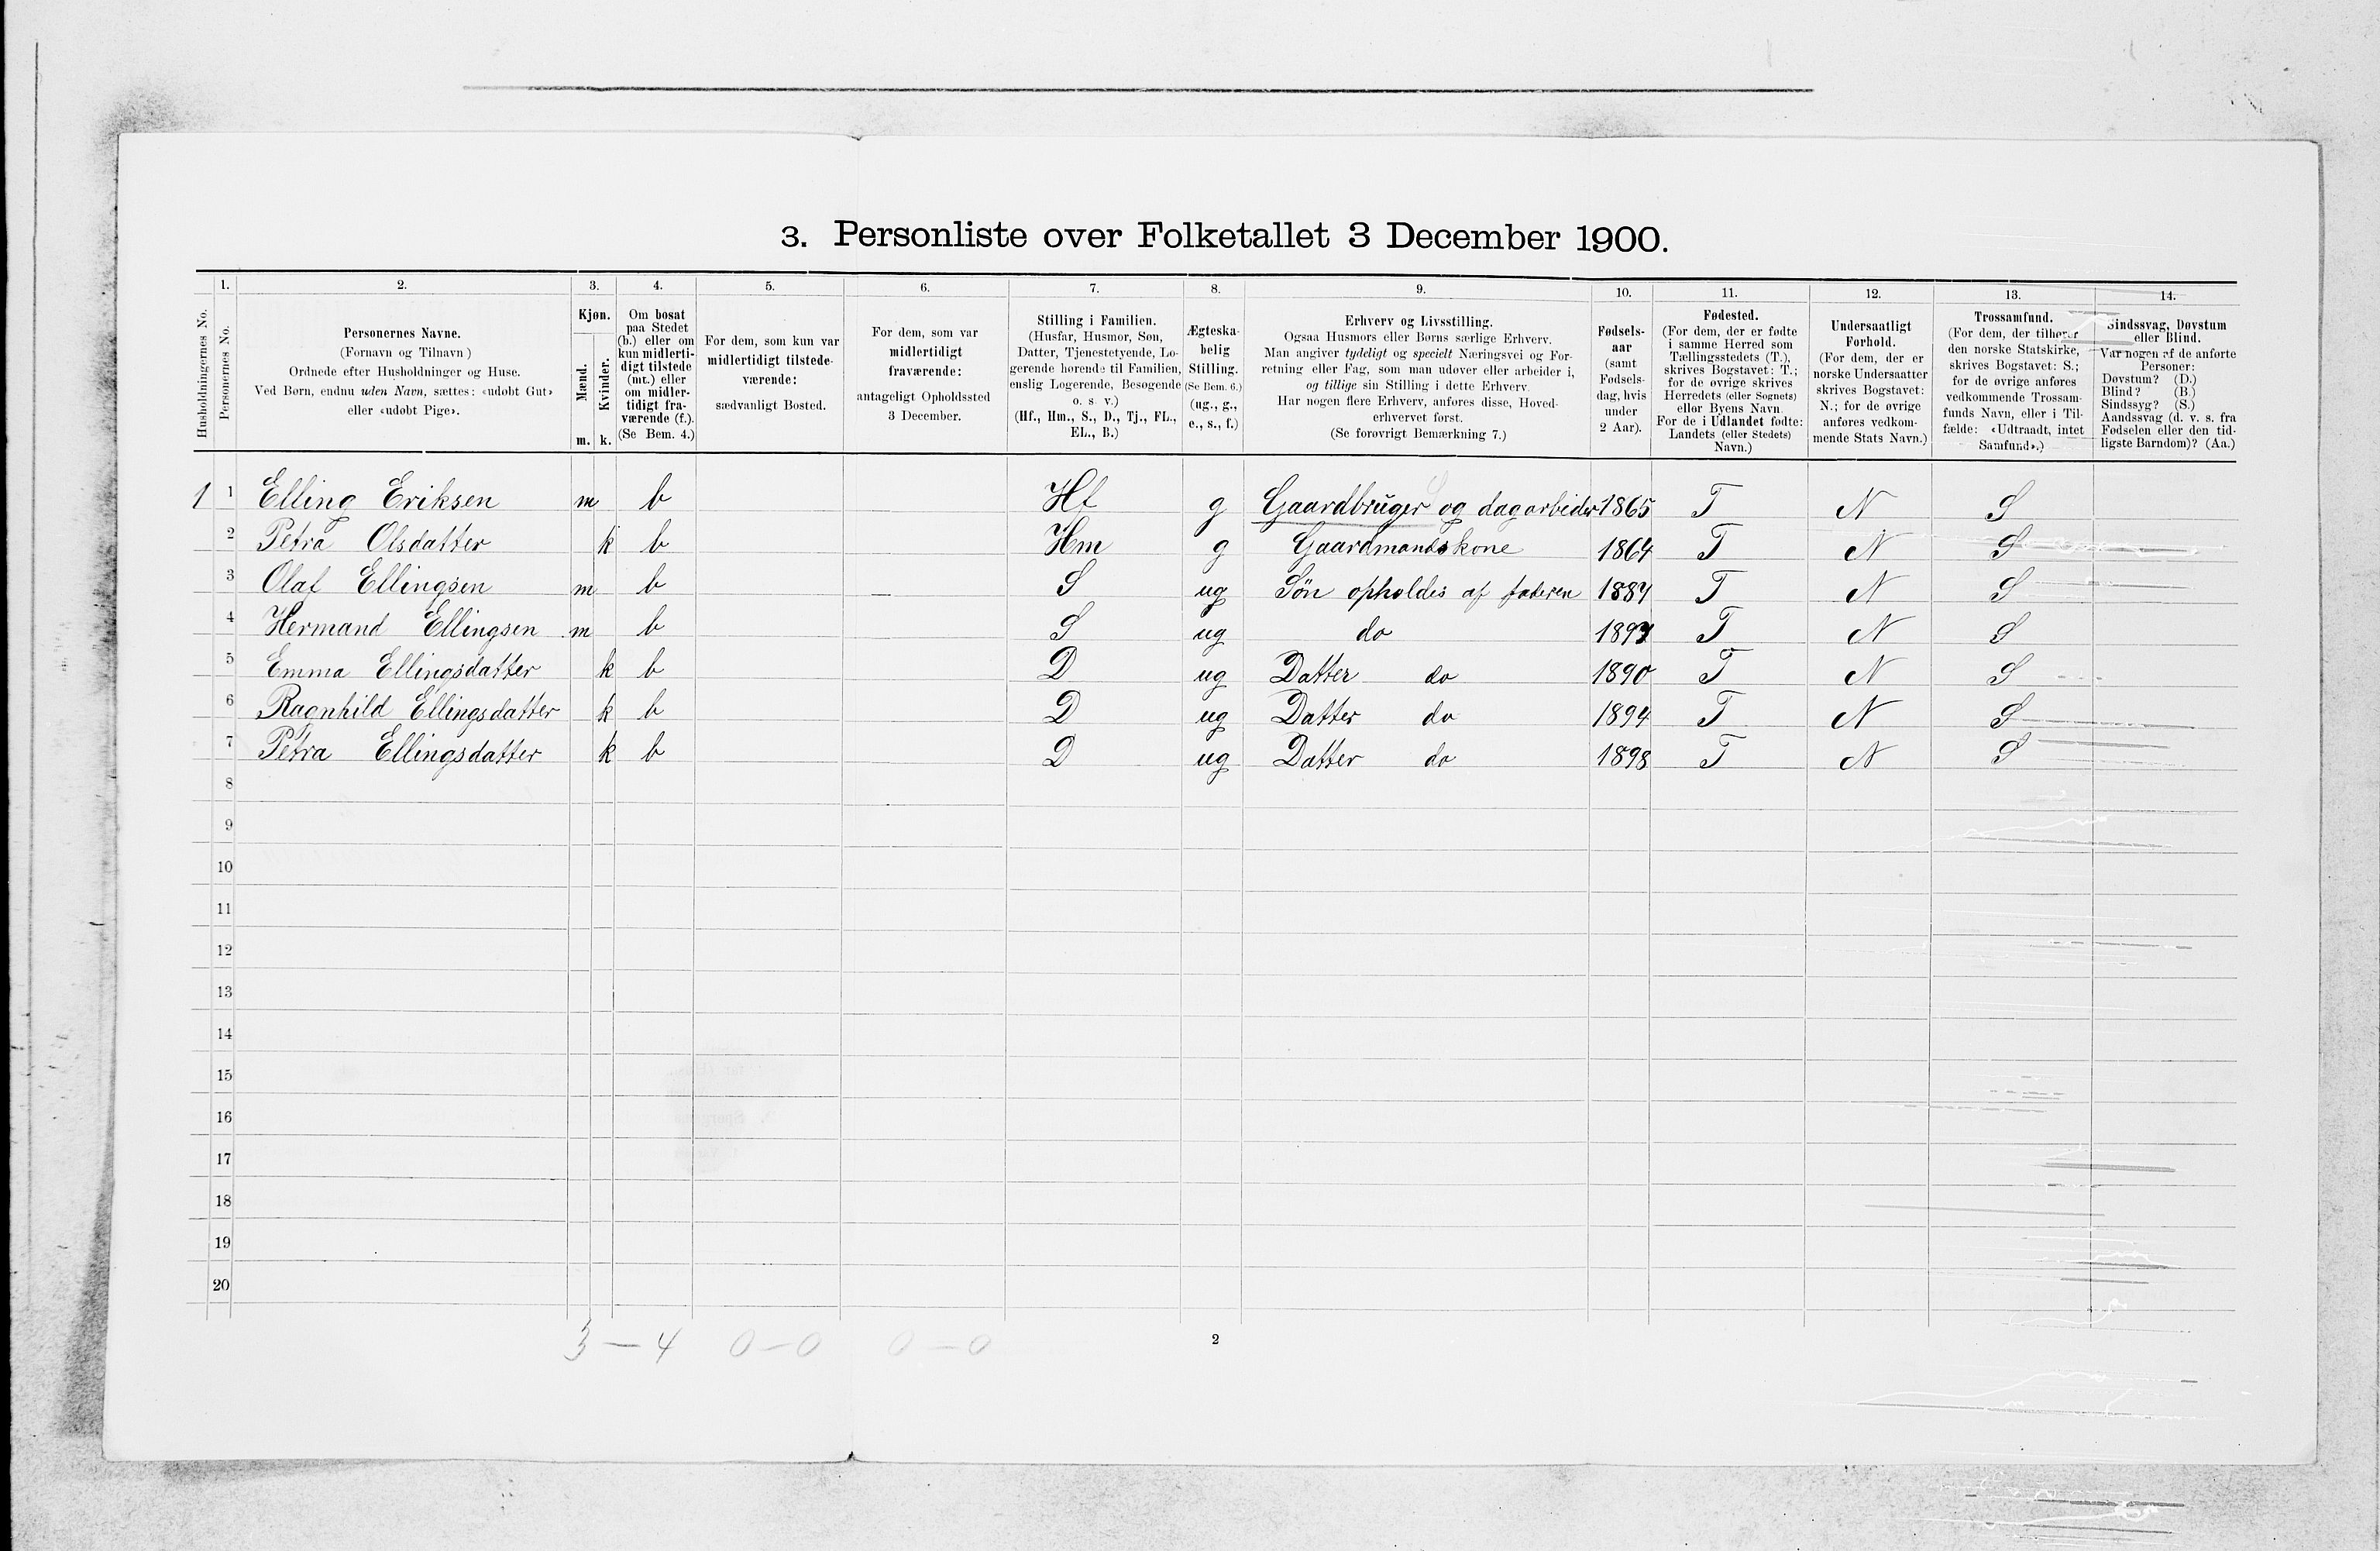 3. Personliste over Folketallet 3 December 1900.
1. 2. 3. 4. 5. 6. 7. 8. 9. 10. 11. 12. 13. 14.
Husholdningernes No.
Personernes No.
Personernes Navne.
(Fornavn og Tilnavn)
Ordnede efter Husholdninger og Huse.
Ved Børn, endnu uden Navn, sættes: «udøbt Gut»
eller «udøbt Pige».
Kjøn.
Mænd.
Kvinder.
m. k.
Om bosat
paa Stedet
(b.) eller om
kun midlerti-
digt tilstede
(mt.) eller
om midler-
tidigt fra-
værende (f.).
(Se Bem. 4.)
For dem, som kun var
midlertidigt tilstede-
værende:
sædvanligt Bosted.
For dem, som var
midlertidigt
fraværende:
antageligt Opholdssted
3 December.
Stilling i Familien.
(Husfar, Husmor, Søn,
Datter, Tjenestetyende, Lo-
gerende hørende til Familien,
enslig Logerende, Besøgende
o. s. v.)
(Hf., Hm., S., D., Tj., FL.,
EL., B.)
Ægteska-
belig
Stilling.
(Se Bem. 6.)
(ug., g.,
e., s., f.)
Erhverv og Livsstilling.
Ogsaa Husmors eller Børns særlige Erhverv.
Man angiver tydeligt og specielt Næringsvei og For-
retning eller Fag, som man udøver eller arbeider i,
og tillige sin Stilling i dette Erhverv.
Har nogen flere Erhverv, anføres disse, Hoved-
erhvervet først.
(Se forøvrigt Bemærkning 7.)
Fødsels-
aar
(samt
Fødsels-
dag, hvis
under
2 Aar).
Fødested.
(For dem, der er fødte
i samme Herred som
Tællingsstedets (T.),
skrives Bogstavet: T.;
for de øvrige skrives
Herredets (eller Sognets)
eller Byens Navn.
For de i Udlandet fødte:
Landets (eller Stedets)
Navn.)
Undersaatligt
Forhold.
(For dem, der er
norske Undersaatter
skrives Bogstavet:
N.; for de øvrige
anføres vedkom-
mende Stats Navn.)
Trossamfund.
(For dem, der tilhører
den norske Statskirke,
skrives Bogstavet: S.;
for de øvrige anføres
vedkommende Trossam-
funds Navn, eller i Til-
fælde: «Udtraadt, intet
Samfund».)
Sindssvag, Døvstum
eller Blind.
Var nogen af de anførte
Personer:
Døvstum? (D.)
Blind? (B.)
Sindssyg? (S.)
Aandssvag (d. v. s. fra
Fødselen eller den tid-
ligste Barndom)? (Aa.)
1 1 Elling Eriksen m b Hf g Gaardbruger og dagarbeider 1865 T N S
2 Petra Olsdatter k b Hm g Gaardmandskone 1864 T N S
3 Olaf Ellingsen m b S ug Søn opholdes af faderen 1887 T N S
4 Hermand Ellingsen m b S ug do T N S
5 Emma Ellingsdatter k b D ug Datter do 1890 T N S
6 Ragnhild Ellingsdatter k b D ug Datter do 1894 T N S
7 Petra Ellingsdatter k b D ug Datter do 1898 T N S
8
9
10
11
12
13
14
15
16
17
18
19
20
3 — 4 0 — 0 0 — 0
2